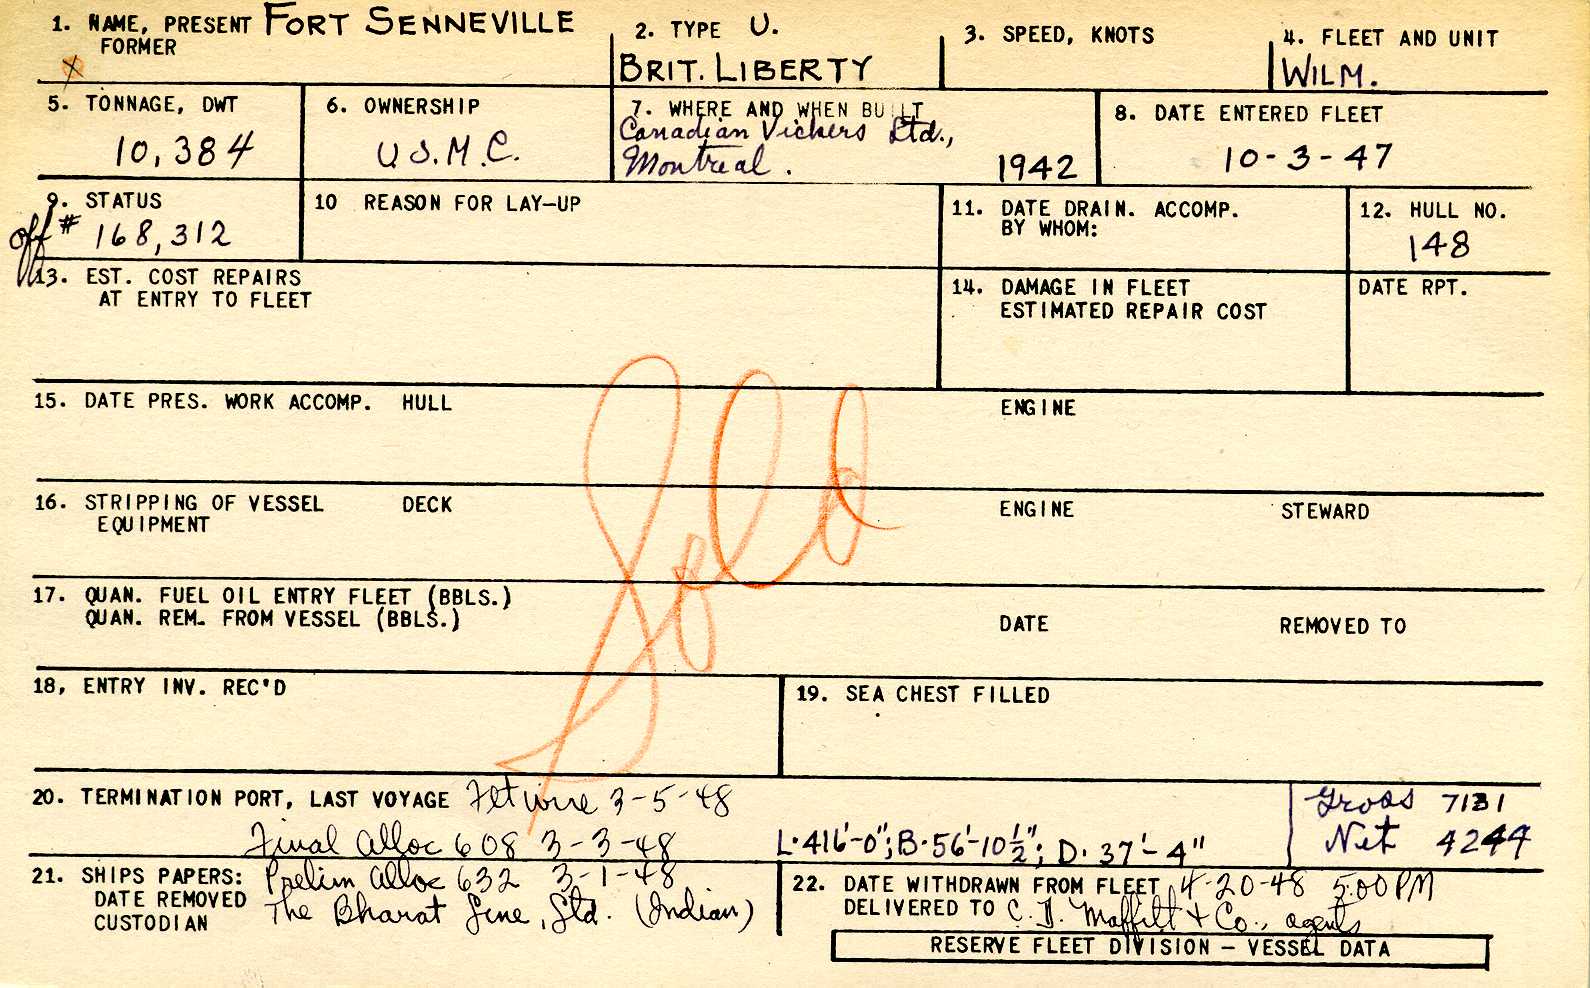 1. NAME, PRESENT FORT SENNEVILLE
FORMER
X
2. TYPE U.
BRIT. LIBERTY
3. SPEED, KNOTS
4. FLEET AND UNIT
WILM.
5. TONNAGE, DWT
10,384
6. OWNERSHIP
U.S.M.C.
7. WHERE AND WHEN BUILT
Canadian Vickers Ltd.,
Montreal. 1942
8. DATE ENTERED FLEET
10-3-47
9. STATUS
off # 168,312
10 REASON FOR LAY-UP
11. DATE DRAIN. ACCOMP.
BY WHOM:
12. HULL NO.
148
13. EST. COST REPAIRS
AT ENTRY TO FLEET
14. DAMAGE IN FLEET
ESTIMATED REPAIR COST
DATE RPT.
Sold
15. DATE PRES. WORK ACCOMP. HULL ENGINE
16. STRIPPING OF VESSEL DECK ENGINE STEWARD
EQUIPMENT
17. QUAN. FUEL OIL ENTRY FLEET (BBLS.)
QUAN. REM. FROM VESSEL (BBLS.) DATE REMOVED TO
18, ENTRY INV. REC'D
19. SEA CHEST FILLED
20. TERMINATION PORT, LAST VOYAGE Flt wire 3-5-48
Final Alloc 608 3-3-48
L. 416'-0"; B. 56'-10 1/2"; D. 37'-4"
Gross 7131
Net 4244
21. SHIPS PAPERS: Prelim Alloc 632 3-1-48
DATE REMOVED The Bharat Line, Ltd. (Indian)
CUSTODIAN
22. DATE WITHDRAWN FROM FLEET 4-20-48 5:00 PM
DELIVERED TO C. D. Maffitt + Co., agents
RESERVE FLEET DIVISION - VESSEL DATA